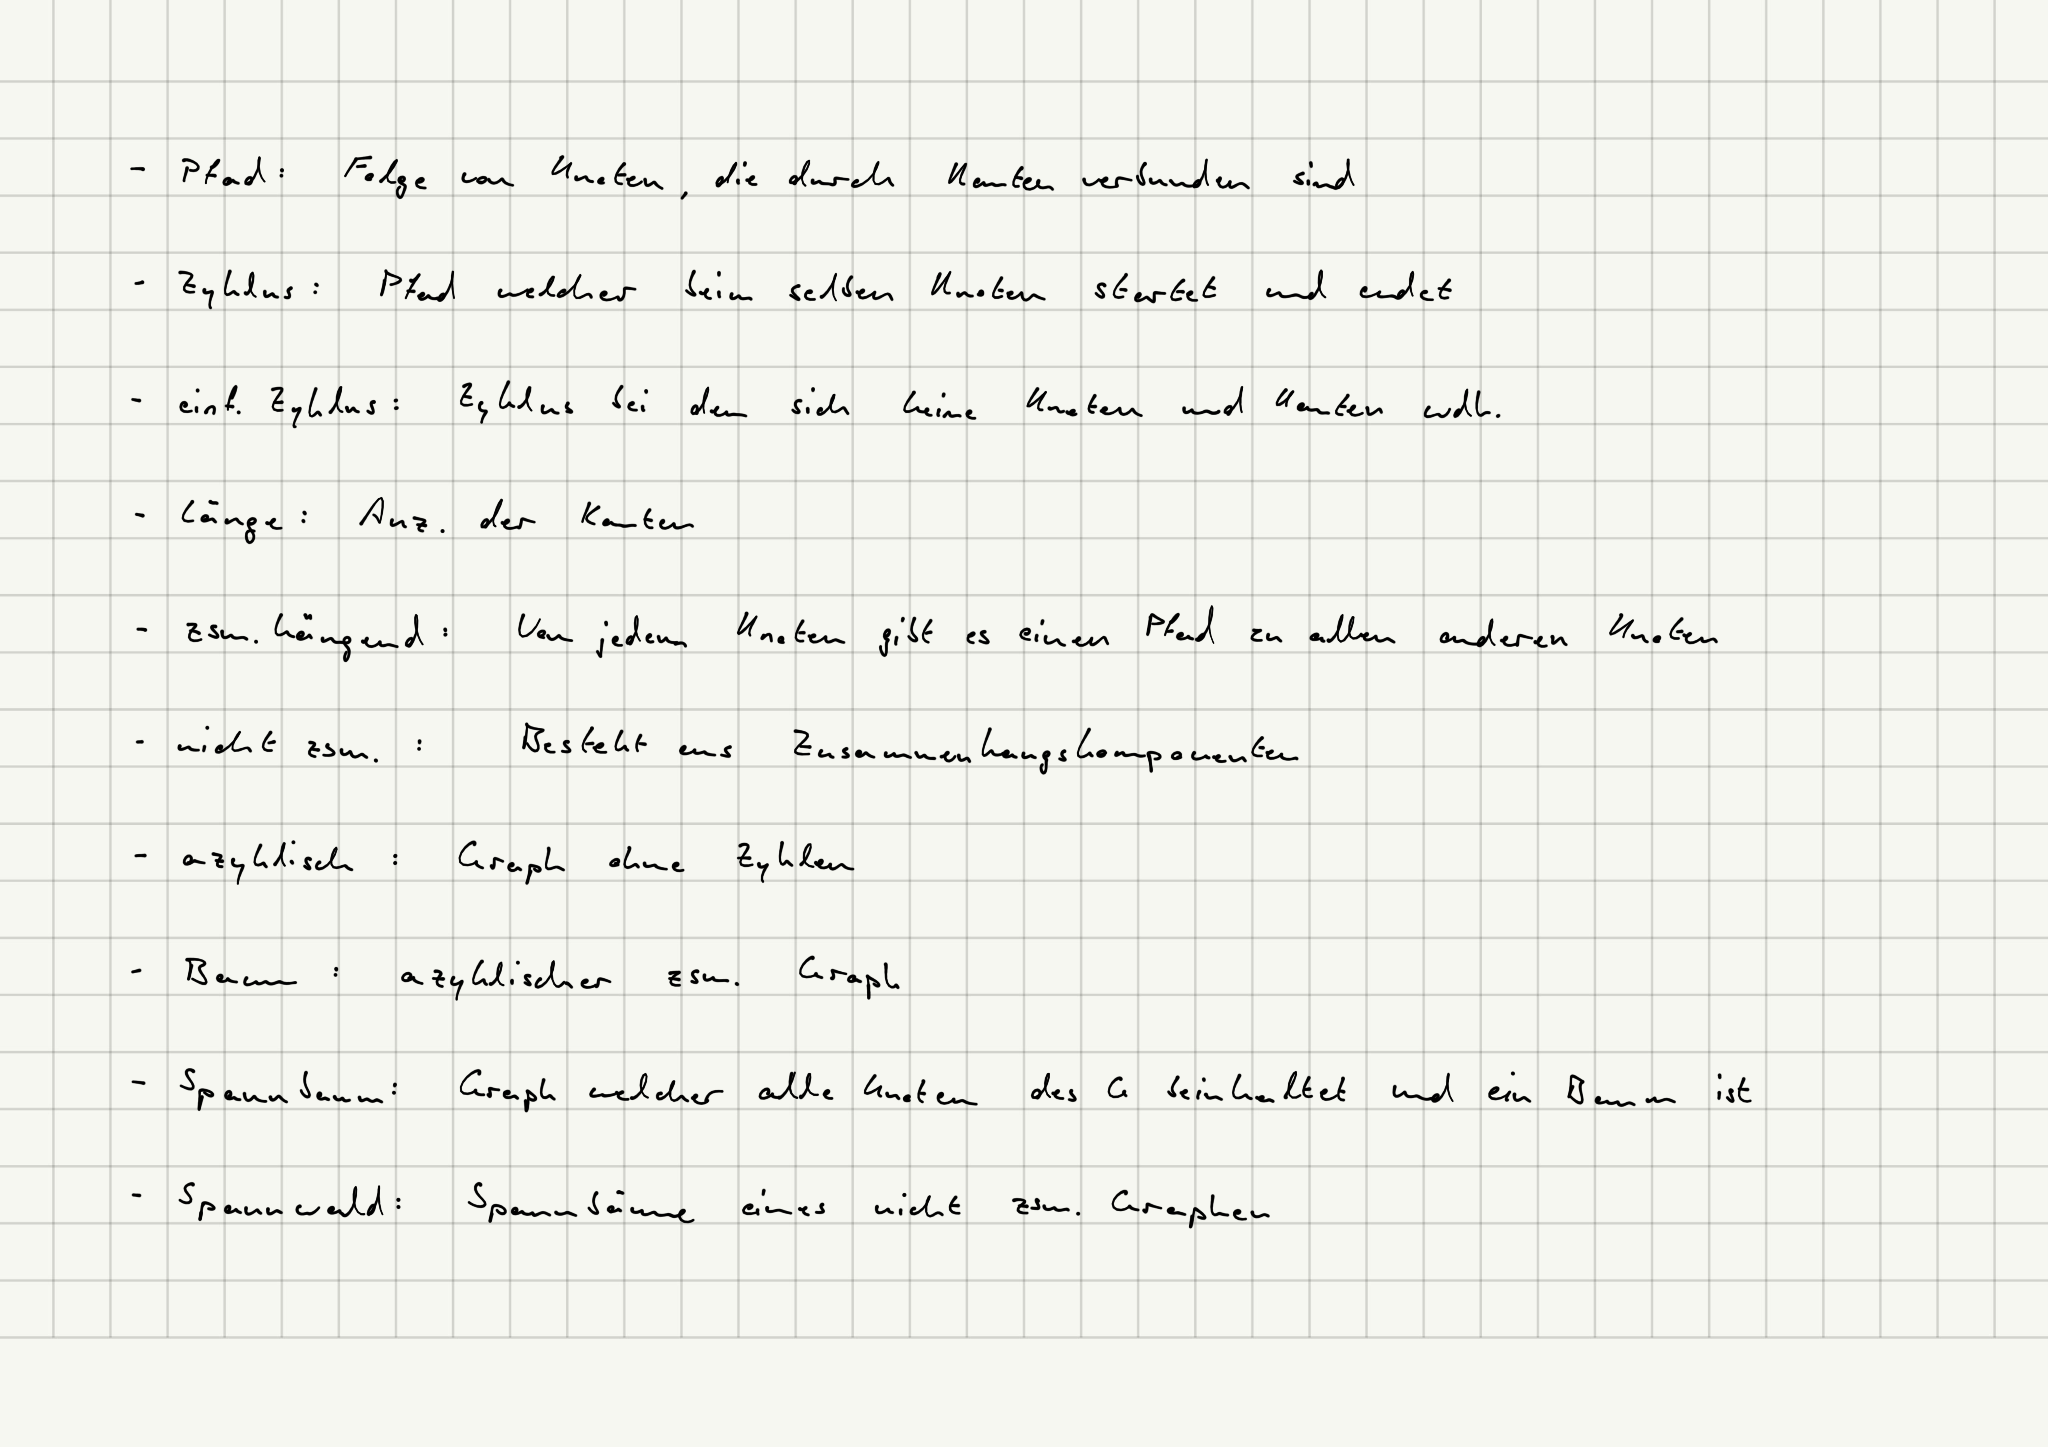 - Pfad: Folge von Knoten, die durch Kanten verbunden sind
- Zyklus: Pfad welcher beim selben Knoten startet und endet
- einf. Zyklus: Zyklus bei dem sich keine Knoten und Kanten wdh.
- Länge: Anz. der Kanten
- zsm. hängend: Von jedem Knoten gibt es einen Pfad zu allen anderen Knoten
- nicht zsm. : Besteht aus Zusammenhangskomponenten
- azyklisch : Graph ohne Zyklen
- Baum : azyklischer zsm. Graph
- Spannbaum: Graph welcher alle Knoten des G beinhaltet und ein Baum ist
- Spannwald: Spannbäume eines nicht zsm. Graphen